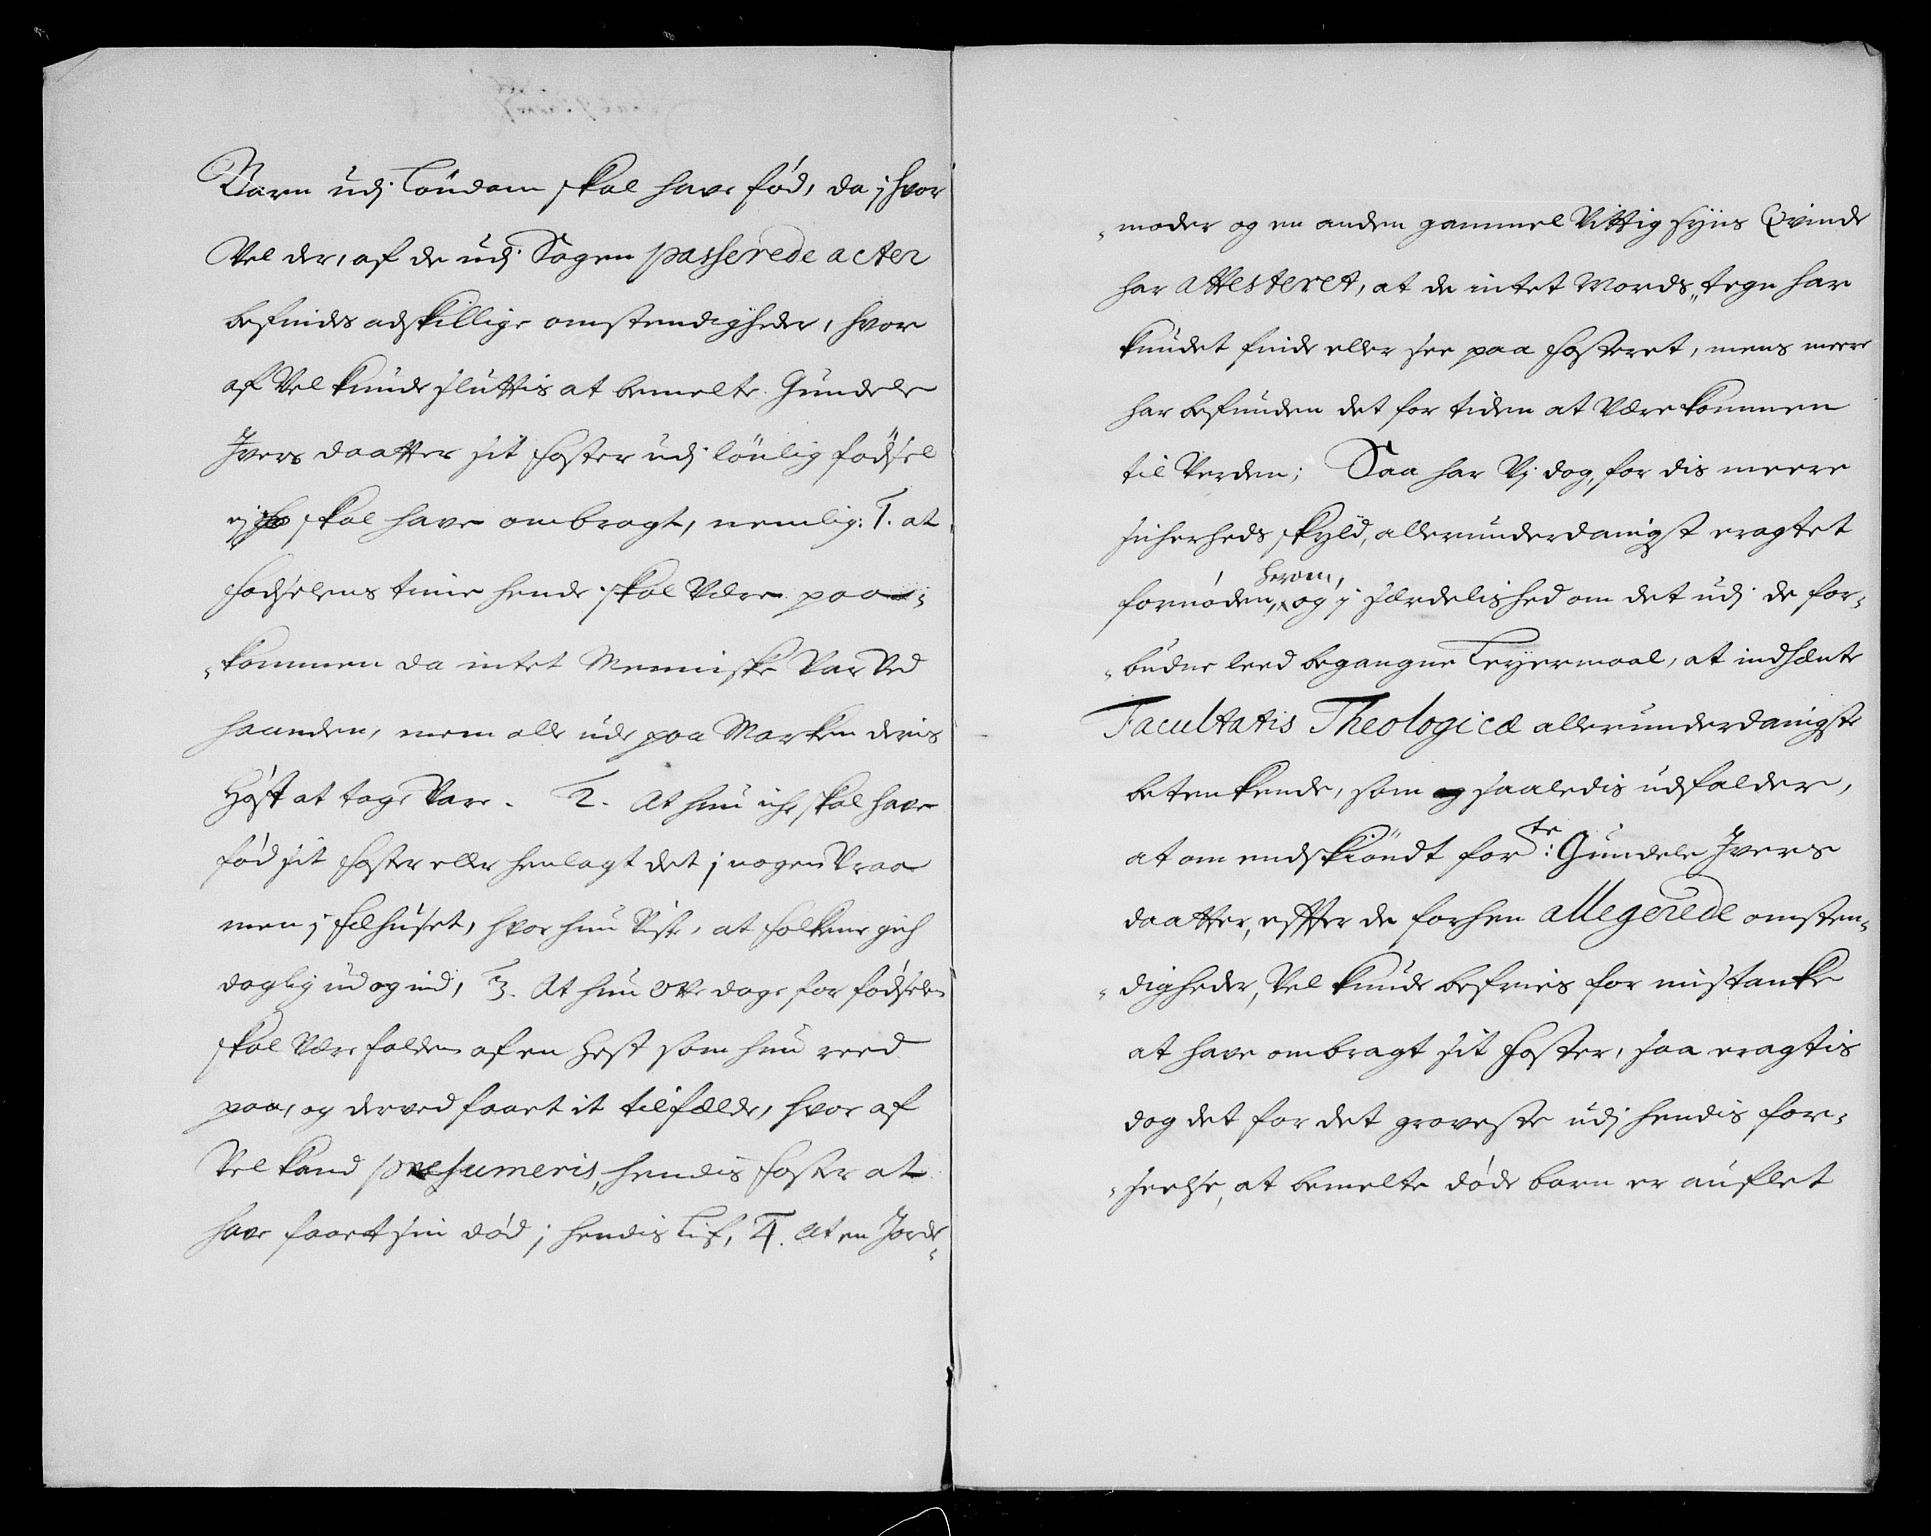 Barn udj Löndom skal have fød, da j hvor
vel der, af de udj Sagen passerede acter
befindes adskillige omstendigheder, hvor
af vel kunde sluttis at bemelte Gundele
Jvers daatter sit foster udj lönlig fødsel
ej skal have ombragt, nemlig: 1. at
fødselens time hende skal være paa-
kommen da intet Menniske var ved
haanden, mens alle ude paa Marken deris
Høst at tage vare. 2. At hun iche skal have
fød sit foster eller henlagt det j nogen Vraa
men j fehuset, hvor hun viste, at folkene gich
daglig ud og ind, 3. At hun otte dage for fødselen
skal være falden af en Hest som hun reed
paa, og derved faaet it tilfælde, hvor af
vel kand præsumeris, hendis foster at
have faaet sin død j hendis Lif, 4. At en Jorde-
moder og en anden gammel vittig Syns Qvinde
har attesteret, at de intet Mords-tegn har
kundet finde eller see paa fosteret, mens meere
har befunden det for tiden at være kommen
til verden; Saa har vj dog, for dis meere
sicherheds skyld, allerunderdanigst eragtet
fornøden, herom, og j særdelished om det udj de for-
budne leed begangne Leyermaal, at indhænte
Facultatis Theologicæ allerunderdanigste
betenkende, som saaledis udfalder,
at om endskiöndt forte: Gundele Jvers
daatter, effter de forhen allegerede omsten-
digheder, vel kunde befries for mistanke
at have ombragt sit foster, saa eragtis
dog det for det groveste udj hendis for-
seelse, at bemelte døde barn er auflet